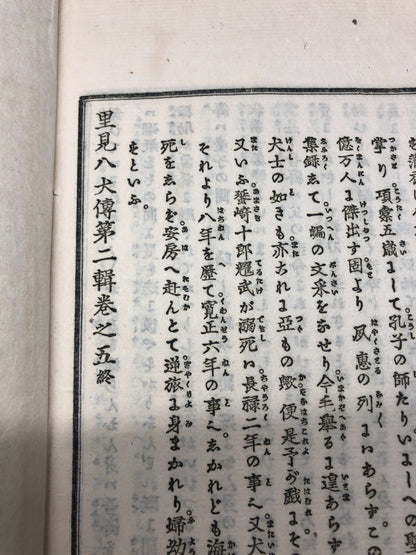 掌り。項橐五歳にして。孔子の師たり。いにしへの聖
億万人に傑出す。固より夙惠の列にはあらず。この
集録して一編の文采をなせり。今玉に擧るに遑あらず
犬士の如きも亦これに亞もの歟。便是予が戲にそ
又いふ蜑崎十郎輝武が溺死は。長禄二年の事へ。又犬
それより八年を歴て。寛正六年の事へ。しかれども海
死をしらせ。安房へ赴んとて。逆旅に身まかれり。婦幼
をといふ。
里見八犬傳第二輯卷之五終